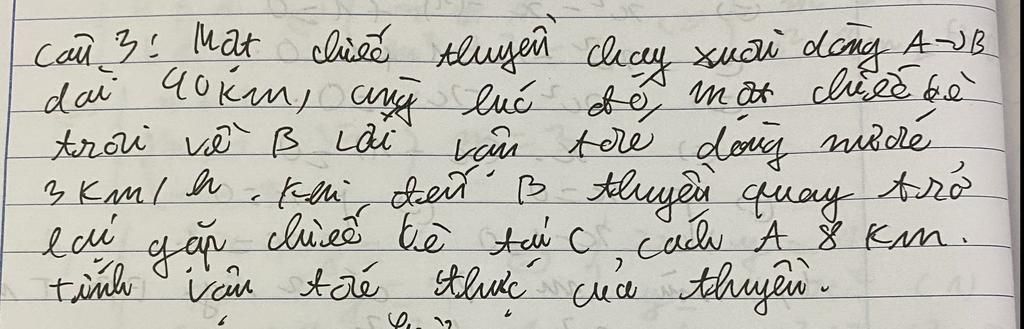 Câu 3: Một chiếc thuyền chạy xuôi dòng A→B
dài 40km, cùng lúc đó, một chiếc bè
trôi về B với vận tốc dòng nước
3 Km/h. Khi đến B thuyền quay trở
lại gặp chiếc bè tại C, cách A 8 Km.
tính vận tốc thực của thuyền.